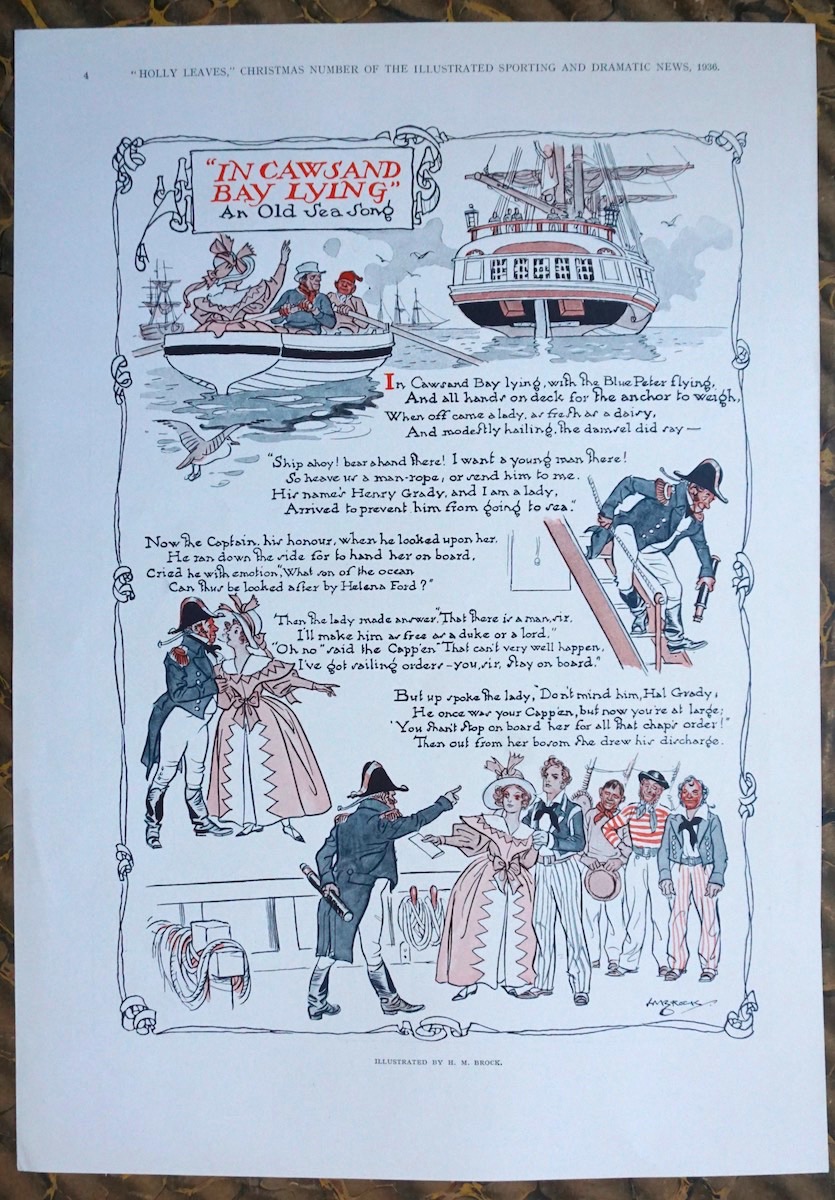 4
"HOLLY LEAVES," CHRISTMAS NUMBER OF THE ILLUSTRATED SPORTING AND DRAMATIC NEWS, 1936.
"IN CAWSAND
BAY LYING"
An Old Sea Song
In Cawsand Bay lying, with the Blue Peter flying,
And all hands on deck for the anchor to weigh,
When off came a lady, as fresh as a daisy,
And modestly hailing, the damsel did say—
"Ship ahoy! bear a hand there! I want a young man there!
So heave us a man-rope, or send him to me.
His name's Henry Grady, and I am a lady,
Arrived to prevent him from going to sea."
Now the Captain, his honour, when he looked upon her,
He ran down the side for to hand her on board,
Cried he with emotion, "What son of the ocean
Can thus be looked after by Helena Ford?"
Then the lady made answer, "That there is a man, sir,
I'll make him as free as a duke or a lord,"
"Oh no" said the Capp'en "That can't very well happen,
I've got sailing orders—you, sir, stay on board."
But up spoke the lady, "Don't mind him, Hal Grady,
He once was your Capp'en, but now you're at large;
You shan't stop on board her for all that chap's order!"
Then out from her bosom she drew his discharge.
HMBROCK
ILLUSTRATED BY H. M. BROCK.